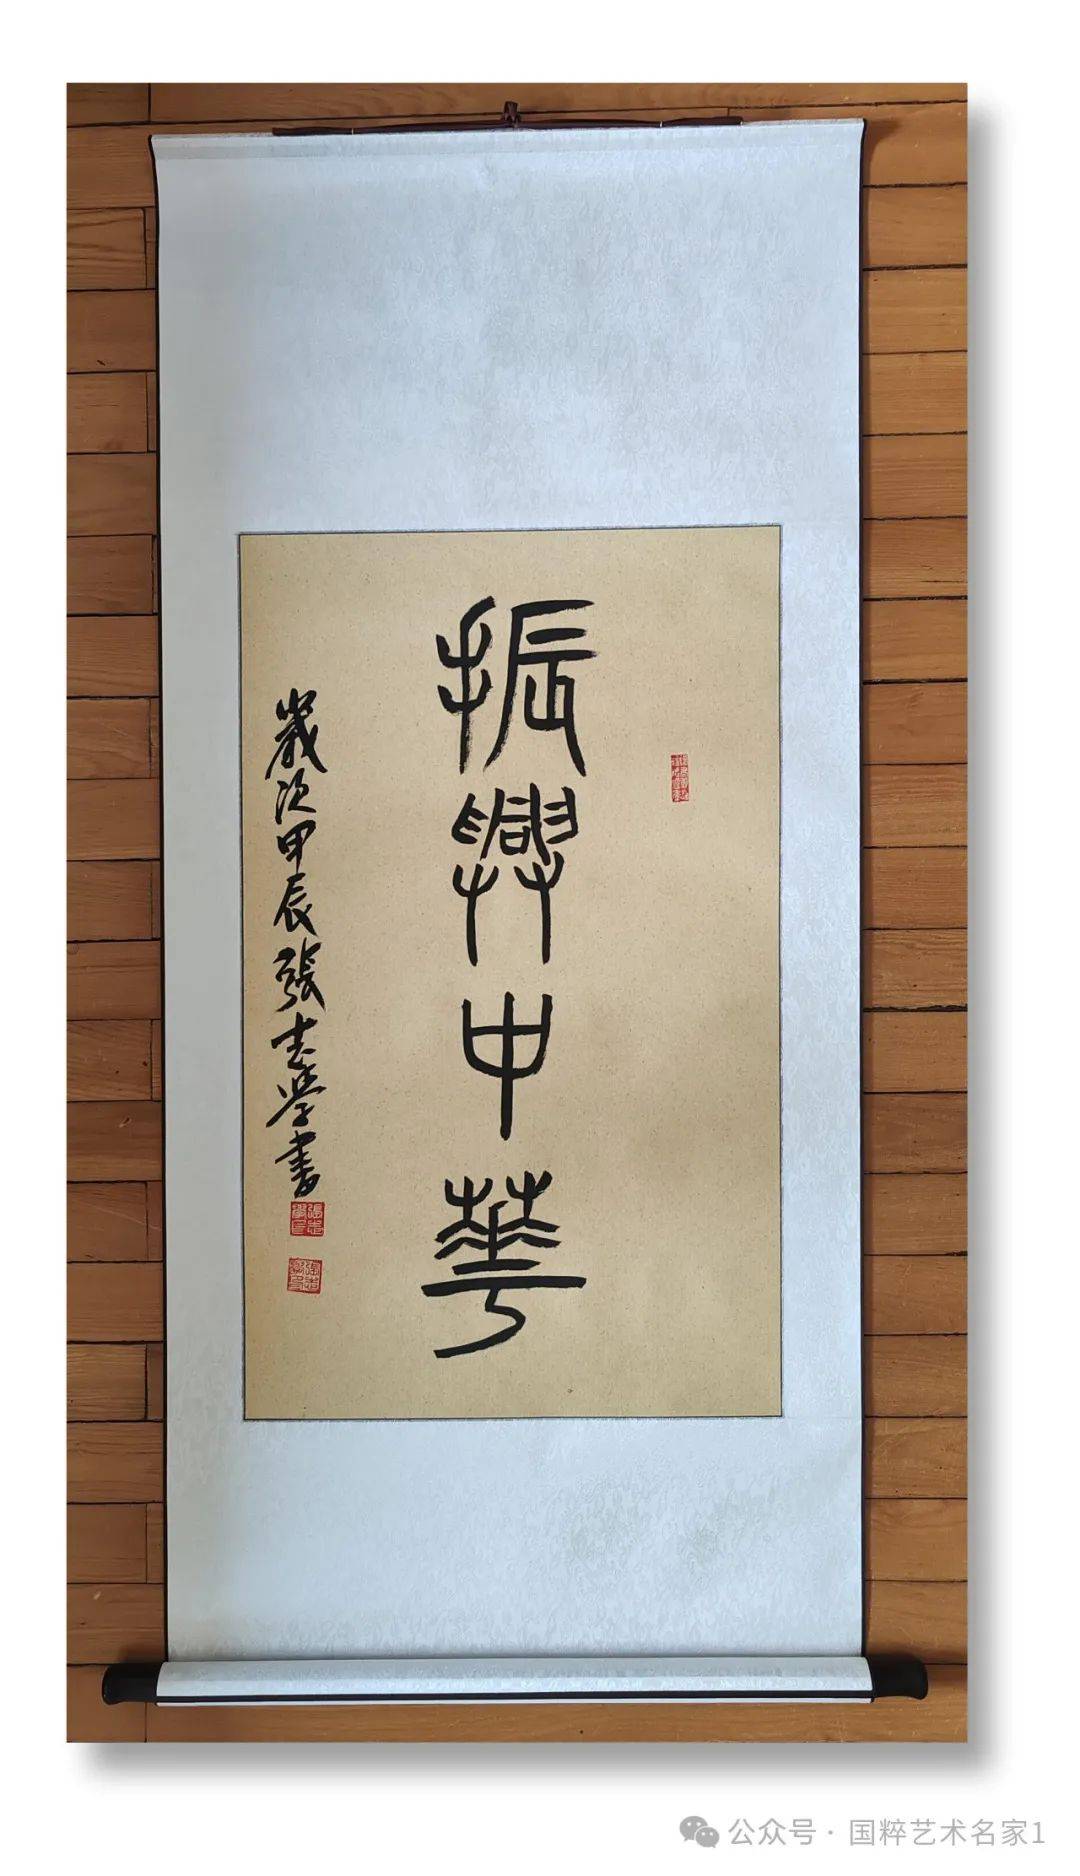 振興中華
歲次甲辰張志學書
公众号 · 国粹艺术名家1